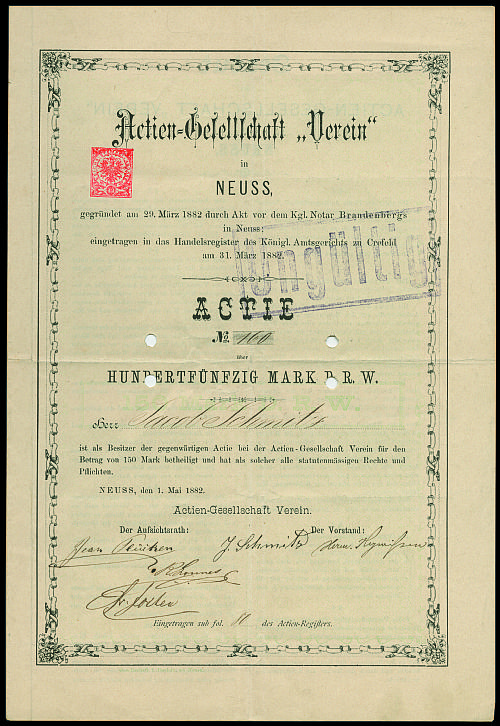 Actien-Gesellschaft „Verein“
in
NEUSS,
gegründet am 29. März 1882 durch Akt vor dem Kgl. Notar Brandenbergs
in Neuss;
eingetragen in das Handelsregister des Königl. Amtsgerichts zu Crefeld
am 31. März 1882.
Ungültig
ACTIE
No. 160
über
HUNDERTFÜNFZIG MARK D. R. W.
Herr Jacob Schmitz
ist als Besitzer der gegenwärtigen Actie bei der Actien-Gesellschaft Verein für den
Betrag von 150 Mark betheiligt und hat als solcher alle statutenmässigen Rechte und
Pflichten.
NEUSS, den 1. Mai 1882.
Actien-Gesellschaft Verein.
Der Aufsichtsrath: Der Vorstand:
Jean J. Schmitz Herm.
Eingetragen sub fol. 11 des Actien-Registers.